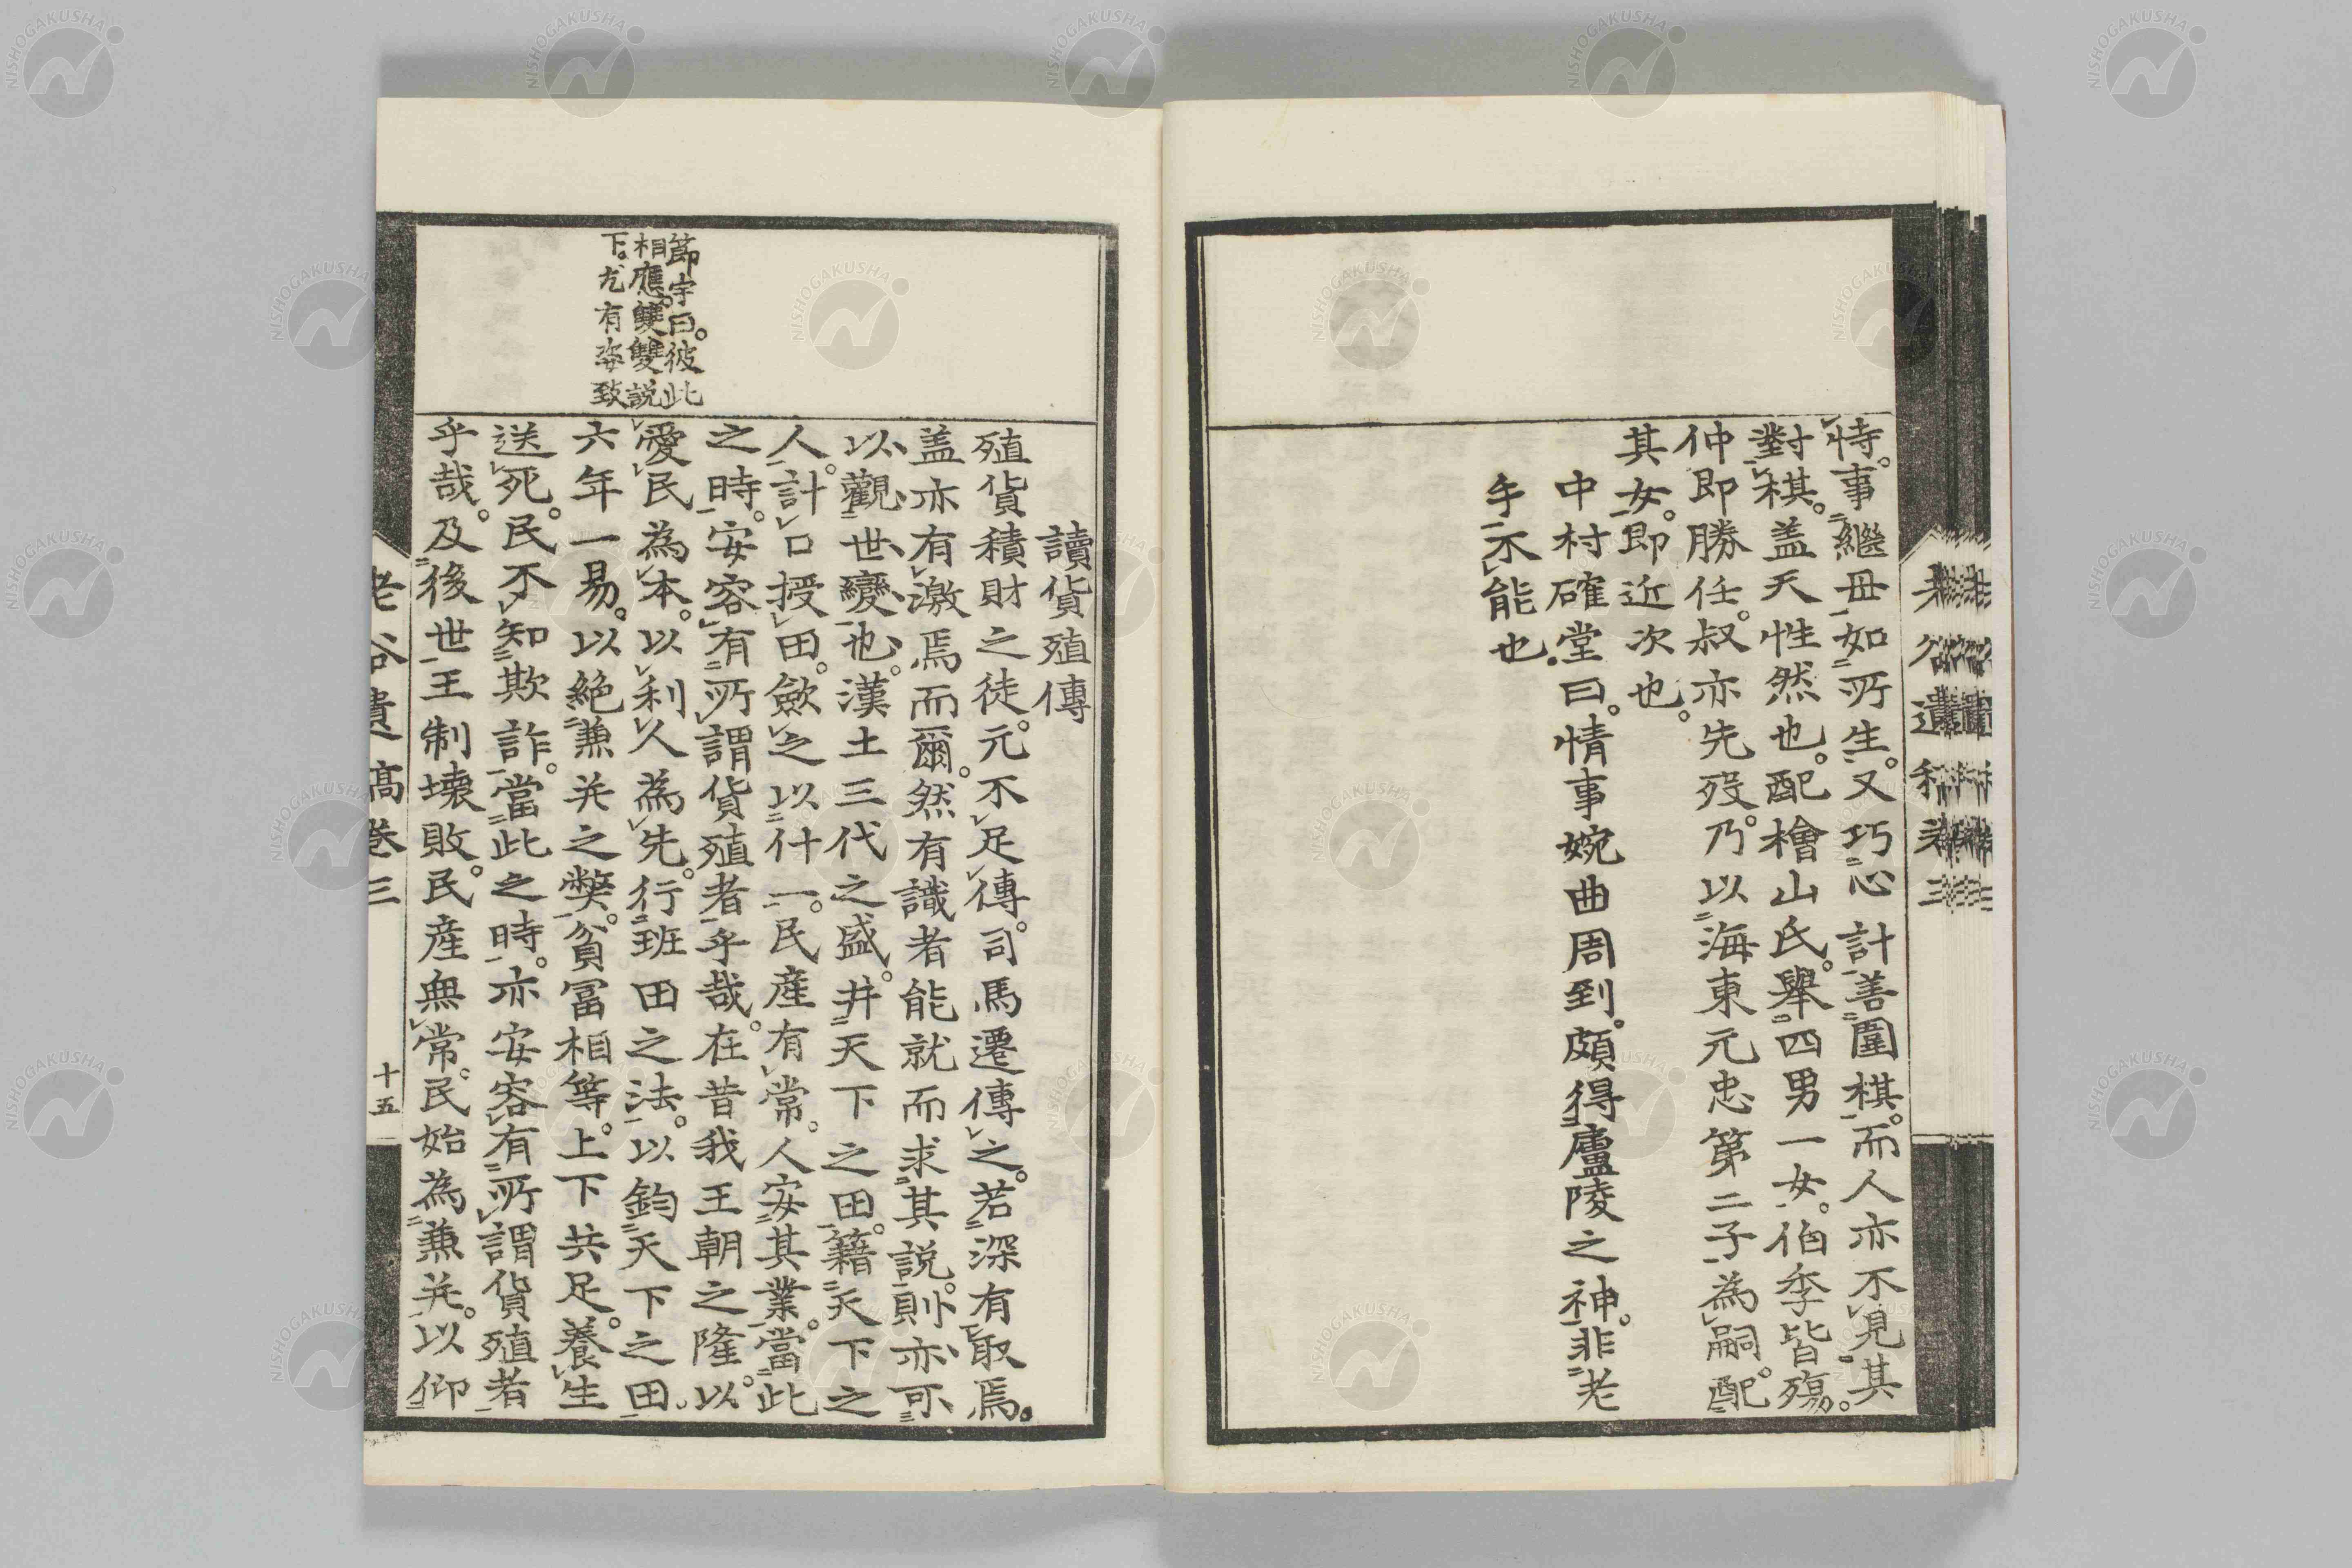 恃。事繼母如所生。又巧心計善圍棋。而人亦不見其
對棋。盖天性然也。配檜山氏。舉四男一女。伯季皆殤。
仲即勝任。叔亦先歿。乃以海東元忠第二子為嗣。配
其女。即近次也。
中村確堂曰。情事婉曲周到。頗得廬陵之神。非老
手不能也。
讀貨殖傳
殖貨積財之徒。元不足傳。司馬遷傳之。若深有取焉。
盖亦有激焉而爾。然有識者能就而求其說。則亦可
以觀世變也。漢土三代之盛。井天下之田。籍天下之
人。計口授田。斂之以什一。民產有常。人安其業。當此
之時。安容有所謂貨殖者乎哉。在昔我王朝之隆。以
愛民為本。以利人為先。行班田之法。以鈞天下之田。
六年一易。以絕兼并之弊。貧富相等。上下共足。養生
送死。民不知欺詐。當此之時。亦安容有所謂貨殖者
乎哉。及後世王制壞敗。民產無常。民始為兼并。以仰
節宇曰。彼此
相應。雙雙說
下。尤有姿致
老谷遺稿卷三
十五
NISHOGAKUSHA